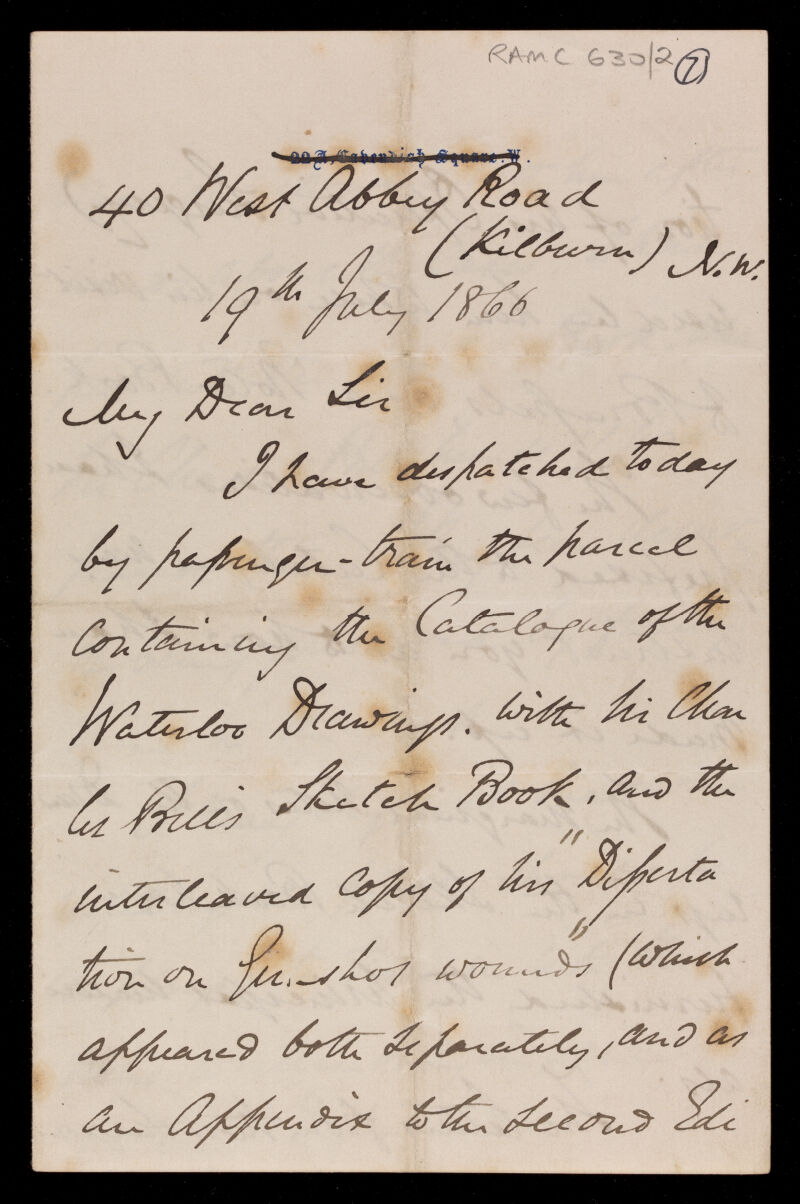 RAMC 630/2 (7)
22A, Cavendish Square. W.
40 West Abbey Road
(Kilburn) N.W.
19th July 1866
My Dear Sir
I have despatched today
by passenger-train the parcel
containing the Catalogue of the
Waterloo Drawings. with Sir Char
les Bell's Sketch Book, and the
interleaved copy of his "Disserta
tion on Gun-shot wounds" (which
appeared both separately, and as
an Appendix to the Second Edi